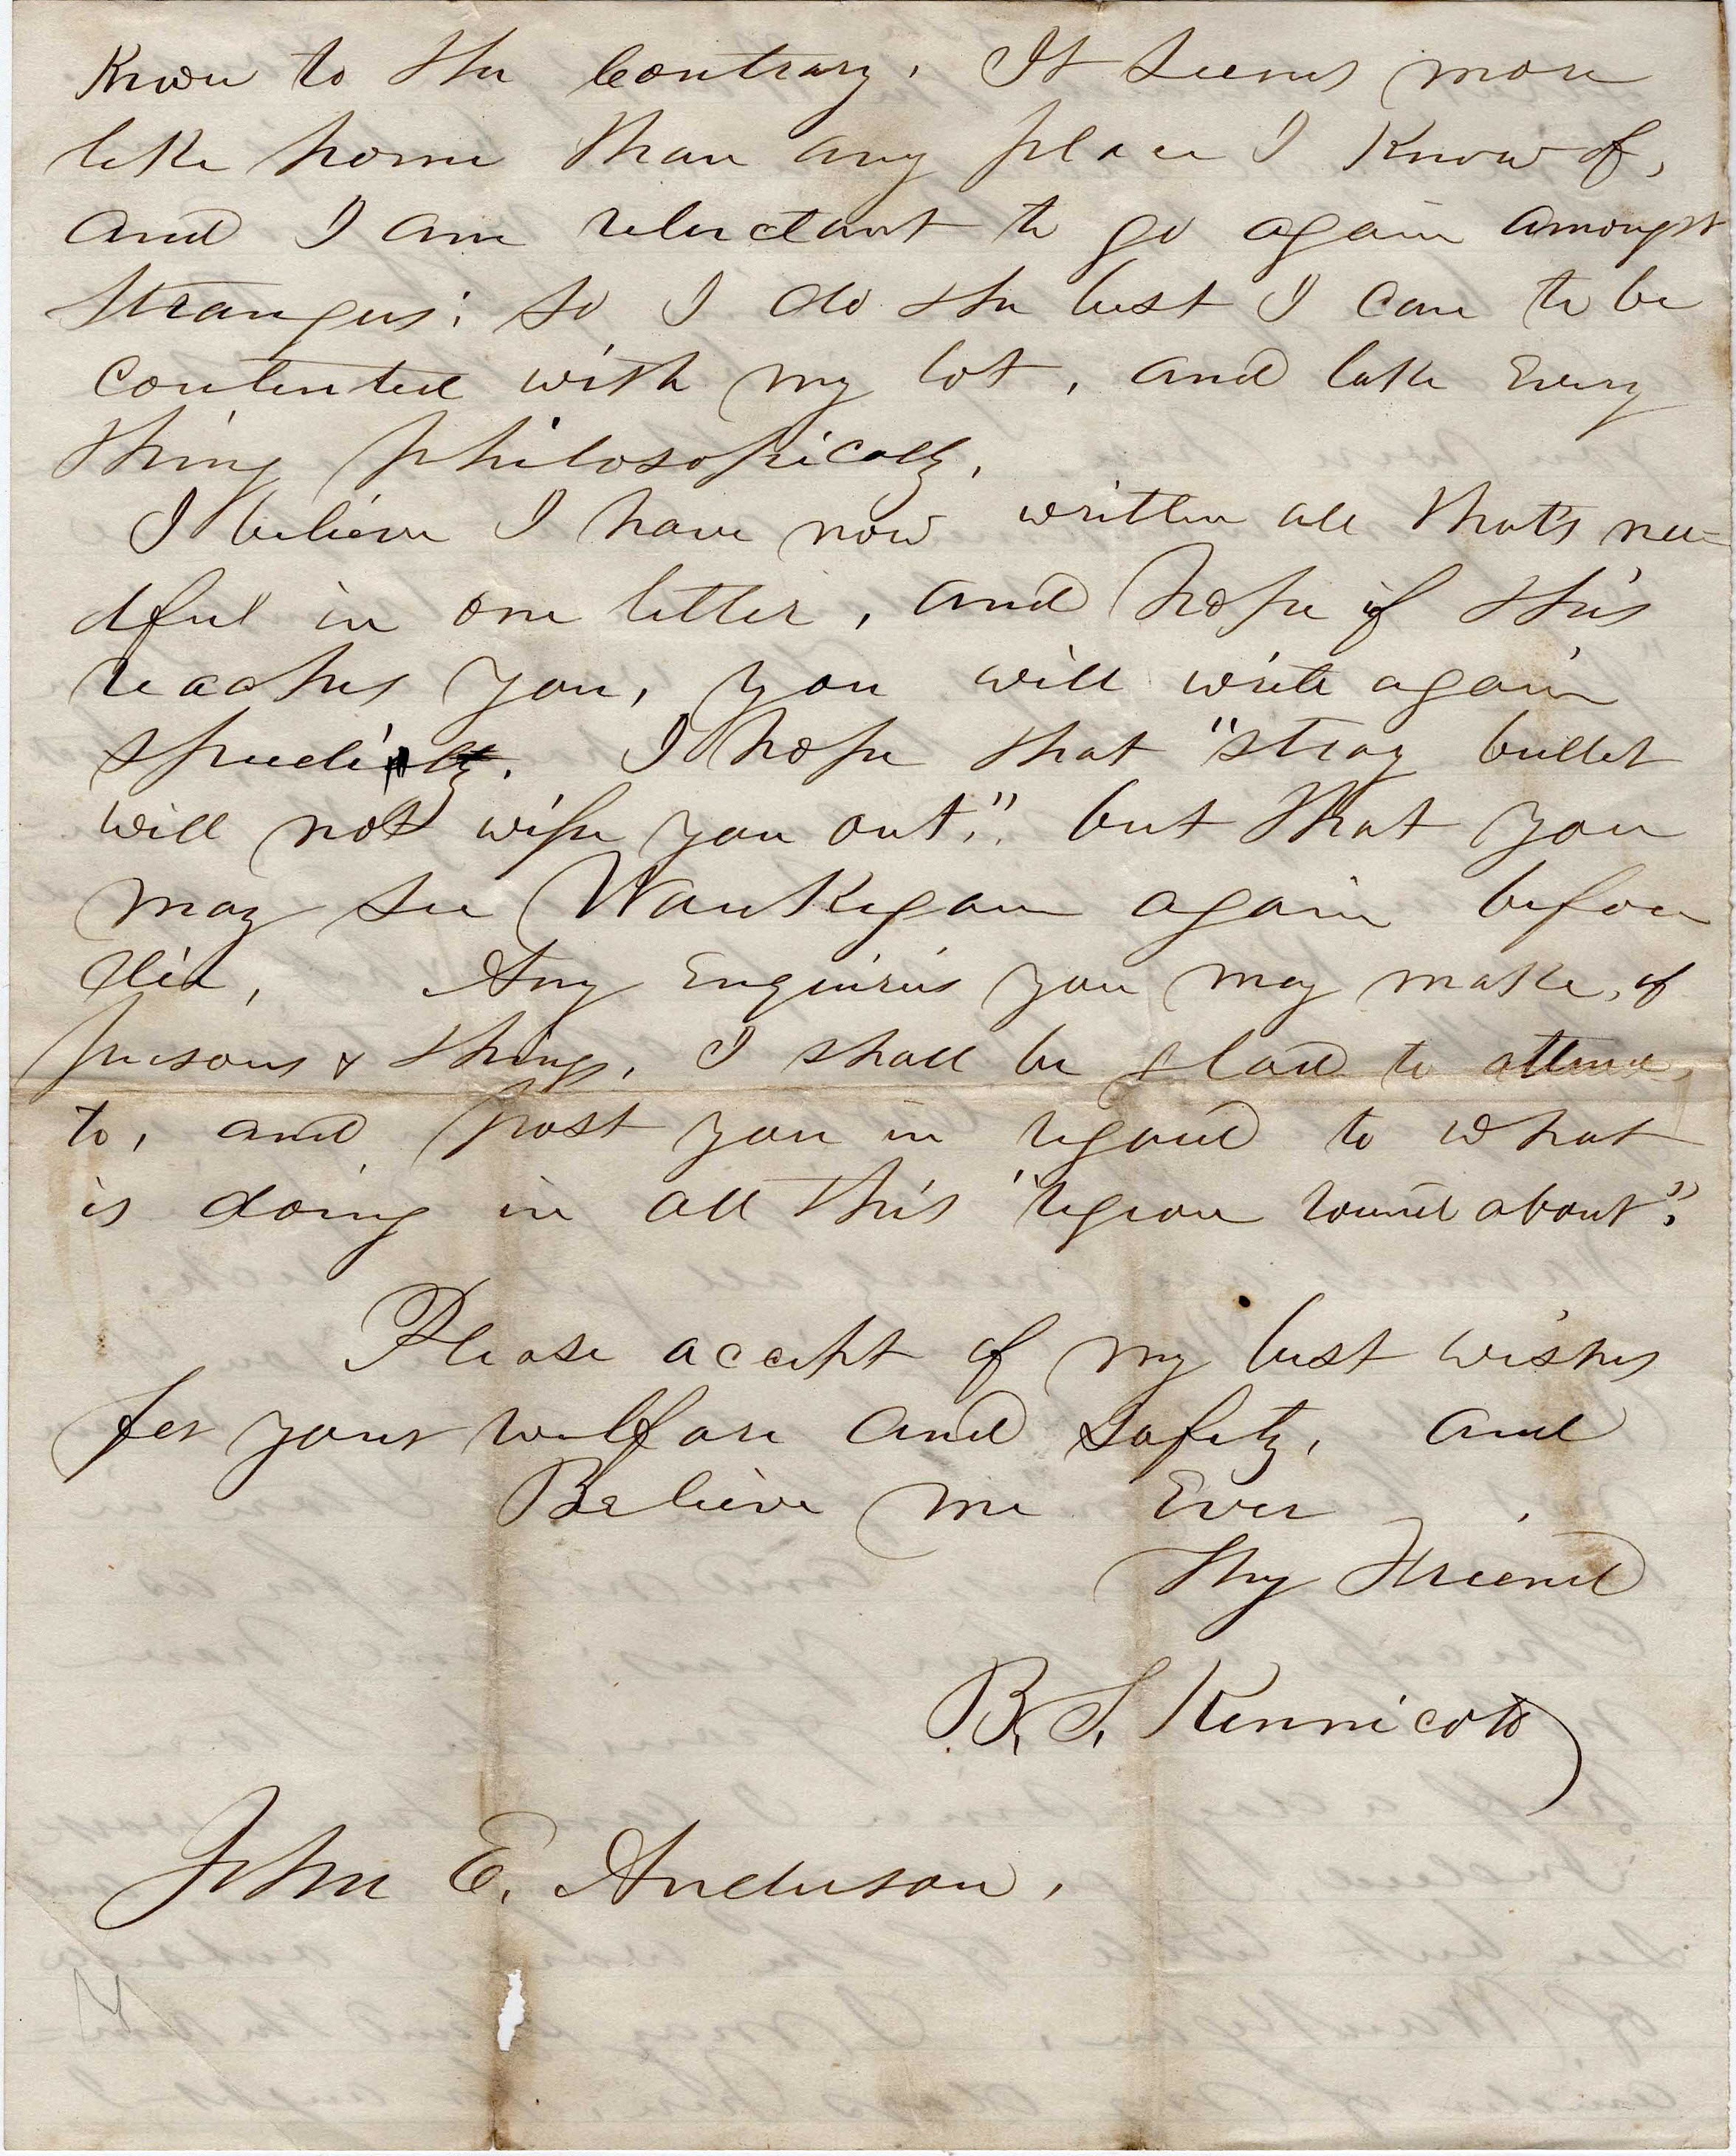 Know to the Contrary. It seems more
like home than any place I Know of,
and I am reluctant to go again amongst
strangers; so I do the best I can to be
contented with my lot, and take Every
thing philosophically.
I believe I have now written all that's nee-
dful in one letter, and hope if this
reaches you, you will write again
speedily. I hope that "stray bullet
will not wipe you out." but that you
may see WauKegan again before
die. Any Enquiries you may make, of
persons & things, I shall be glad to attend
to, and post you in regard to what
is doing in all this "region round about."
Please accept of my best wishes
for your welfare and safety, and
Believe me Ever
Thy Friend
B. S. Kennicott
John E. Anderson.